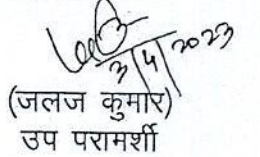 3/4/2023
(जलज कुमार)
उप परामर्शी